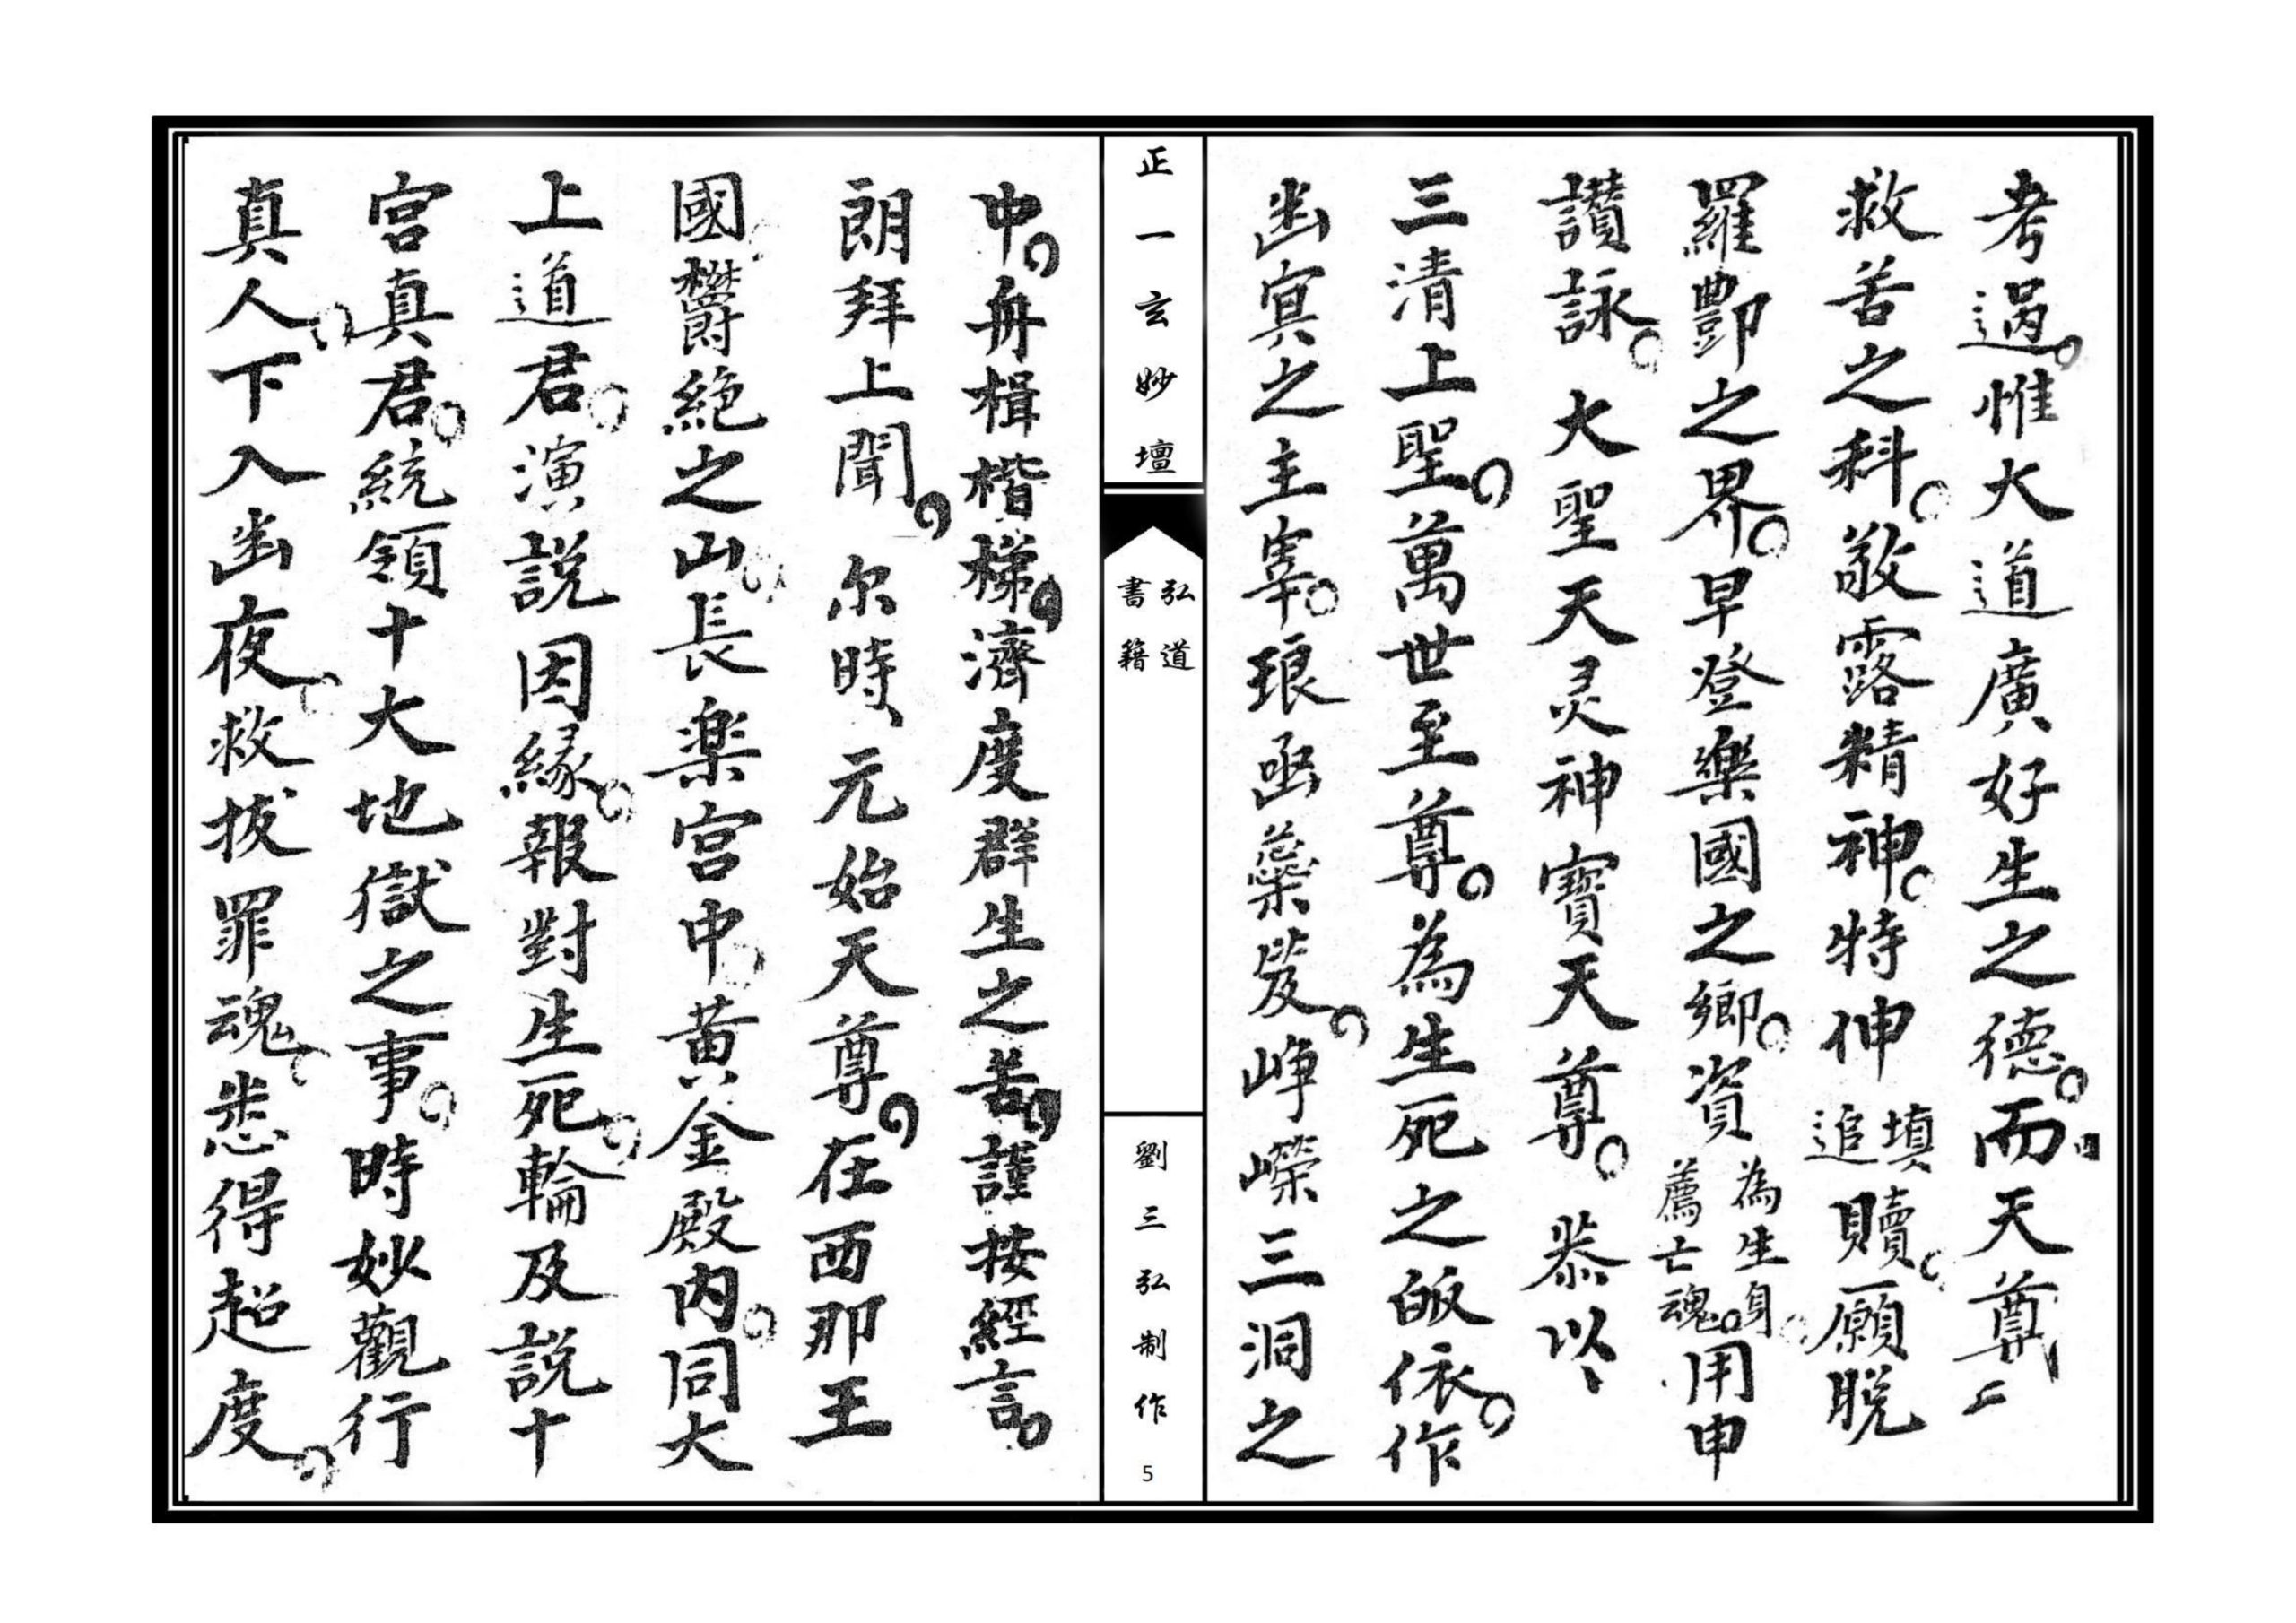 考過惟大道廣好生之德而天尊上
救苦之科敬露精神特伸填追贖願脱
羅酆之界早登樂國之鄉資為生身薦亡魂用申
讚詠大聖天天灵神寶天尊恭以
三清上聖萬世至尊為生死之皈依作
幽冥之主宰琅函蘂笈崢嶸三洞之
正一玄妙壇
弘道
書籍
劉三弘制作
5
中舟楫楷梯濟度群生之苦謹按經言
朗拜上聞尔時元始天尊在西那王
國欝絶之山長楽宮中黄金殿内同大
上道君演説因緣報對生死輪及説十
宮真君統領十大地獄之事時妙觀行
真人下入幽夜救拔罪魂悉得超度